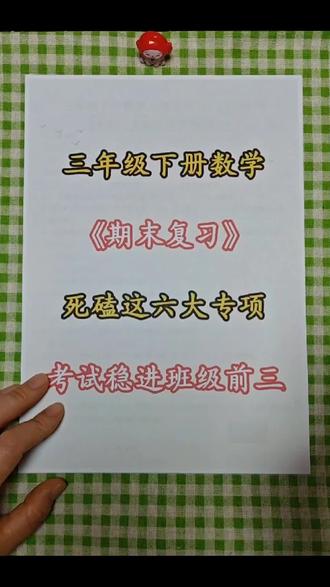 三年级下册数学
《期末复习》
死磕这六大专项
考试稳进班级前三